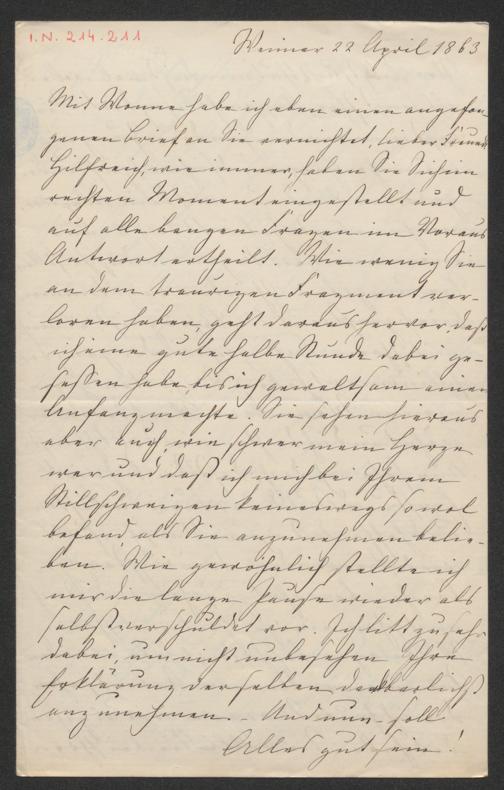 I.N. 214.211
Weimar 22 April 1863
Mit Wonne habe ich eben einen angefan-
genen Brief an Sie vernichtet, lieber Freund.
Hilfreich, wie immer, haben Sie Sich im
rechten Moment eingestellt und
auf alle bangen Fragen im Voraus
Antwort ertheilt. Wie wenig Sie
an dem traurigen Fragment ver-
loren haben, geht daraus hervor, daß
ich eine gute halbe Stunde dabei ge-
sessen habe, bis ich gewaltsam einen
Anfang machte. Sie sehen hieraus
aber auch, wie schwer mein Herze
war und daß ich mich bei Ihrem
Stillschweigen keineswegs so wol
befand, als Sie anzunehmen belie-
ben. Wie gewöhnlich stellte ich
mir die lange Pause wieder als
selbstverschuldet vor. Ich litt zu sehr
dabei, um nicht unbesehen Ihre
Erklärung derselben dankbarlichst
anzunehmen. – Und nun – soll
Alles gut sein!